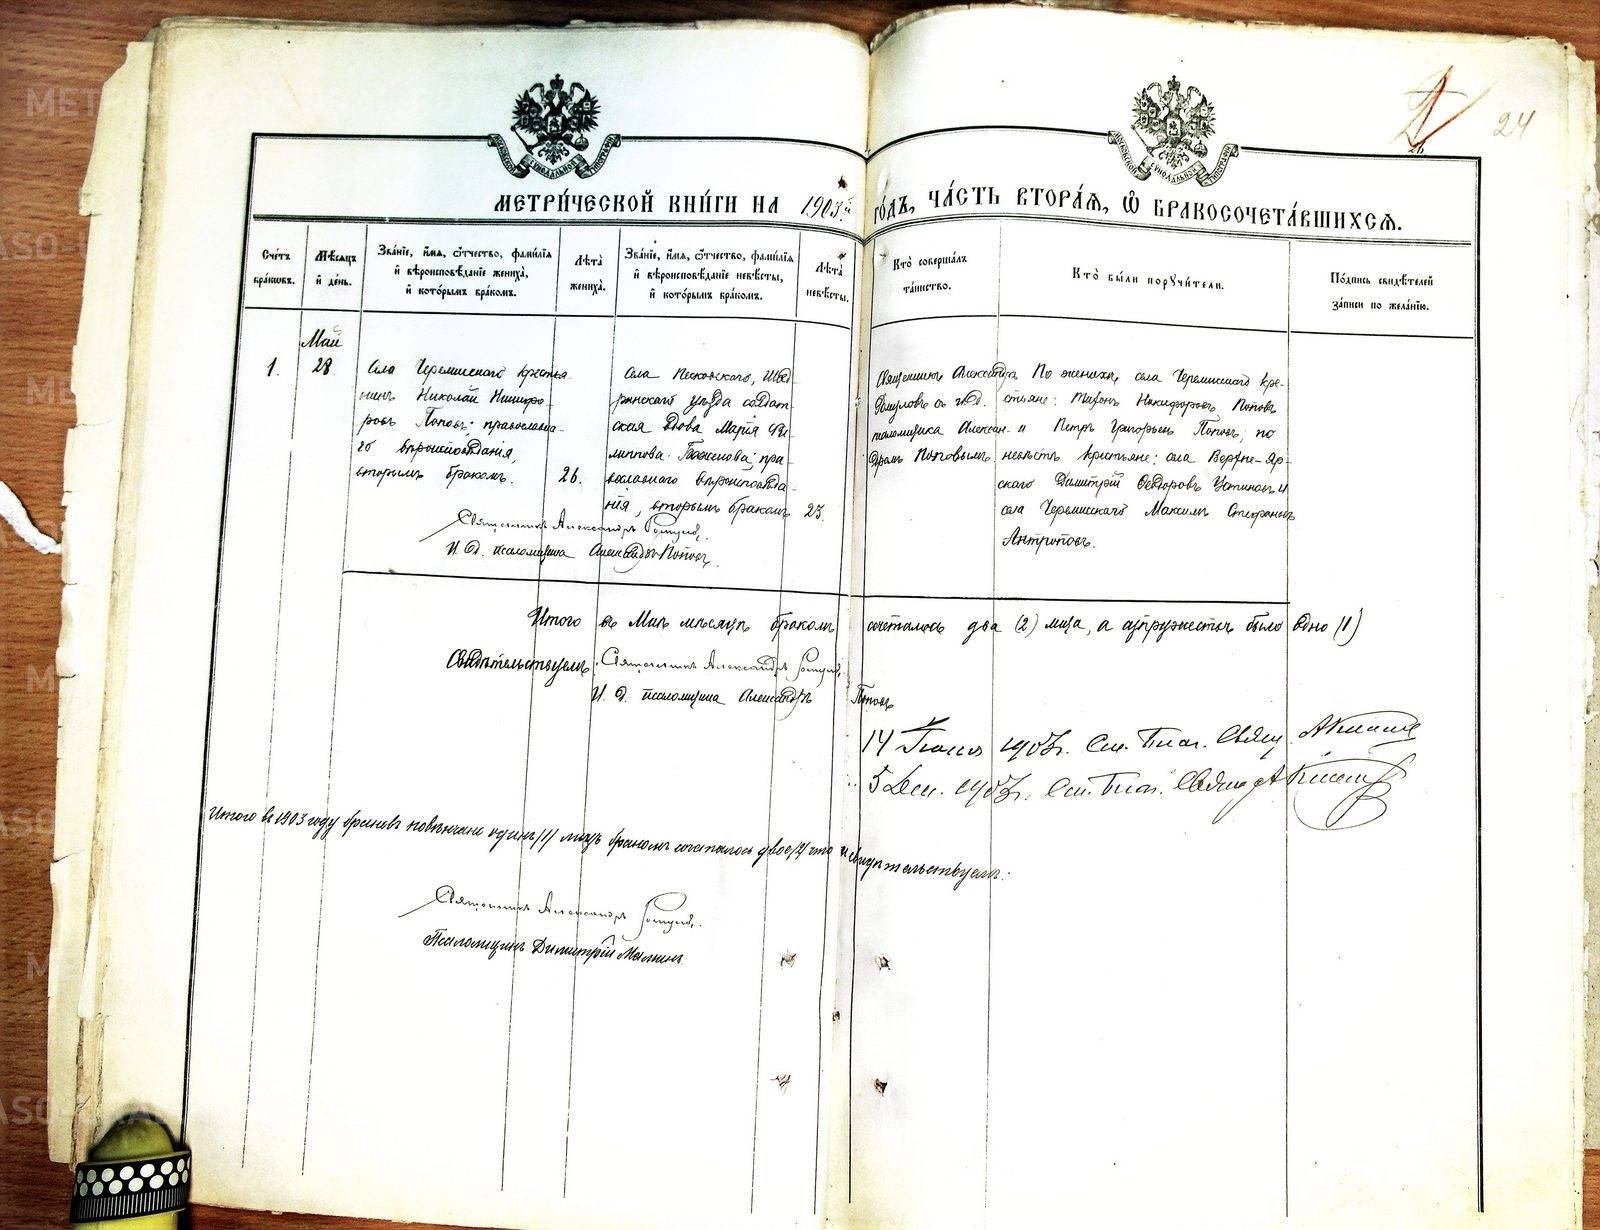 24
МЕТРИ́ЧЕСКОЙ КНИ́ГИ НА 1903й ГО́ДЪ, ЧА́СТЬ ВТОРА́Я, Ѡ҆ БРАКОСОЧЕТА́ВШИХСЯ.
Сче́тъ бра́кѡвъ.
Мѣ́сяцъ и҆ де́нь.
Зва́нїе, и҆́мя, ѻ҆́тчество, фами́лїя и҆ вѣроисповѣ́данїе жениха̀, и҆ кото́рымъ бра́комъ.
Лѣ́та жениха̀.
Зва́нїе, и҆́мя, ѻ҆́тчество, фами́лїя и҆ вѣроисповѣ́данїе невѣ́сты, и҆ кото́рымъ бра́комъ.
Лѣ́та невѣ́сты.
Кто̀ соверша́лъ та́инство.
Кто̀ бы́ли поручи́тели.
По́дпись свидѣ́телей за́писи по жела́нїю.
Май
1.
28
Села Черемисскаго кресть-
нинъ Николай Никифо-
ровъ Поповъ: православна-
го вѣроисповѣданія,
вторымъ бракомъ.
26.
Села Песковскаго, Шад-
ринскаго уѣзда солдат-
ская вдова Марія Фи-
липпова Баженова; пра-
вославнаго вѣроисповѣда-
нія, вторымъ бракомъ
23.
Священникъ Александръ
съ и. д.
псаломщика Алексан-
дромъ Поповымъ
По женихѣ, села Черемисскаго кре-
стьяне: Никифоровъ Поповъ
и Петръ Григорьевъ Поповъ, по
невѣстѣ крестьяне: села Верхне-Яр-
скаго Димитрій Ѳедоровъ Устиновъ и
села Черемисскаго Максимъ Стефановъ
Антроповъ.
Священникъ Александръ
И. д. псаломщика Александръ Поповъ.
Итого въ Маѣ мѣсяцѣ бракомъ сочеталось два (2) лица, а супружествъ было одно (1)
Свидѣтельствуемъ: Священникъ Александръ
И. д. псаломщика Александръ Поповъ
14 1903 г. См. Благ. Свящ.
5 Дек. 1903 г. См. Благ. Священ.
Итого въ 1903 году браковъ повѣнчано одинъ (1) лицъ бракомъ сочеталось двое (2) что и свидѣтельствуемъ:
Священникъ Александръ
Псаломщикъ Димитрій